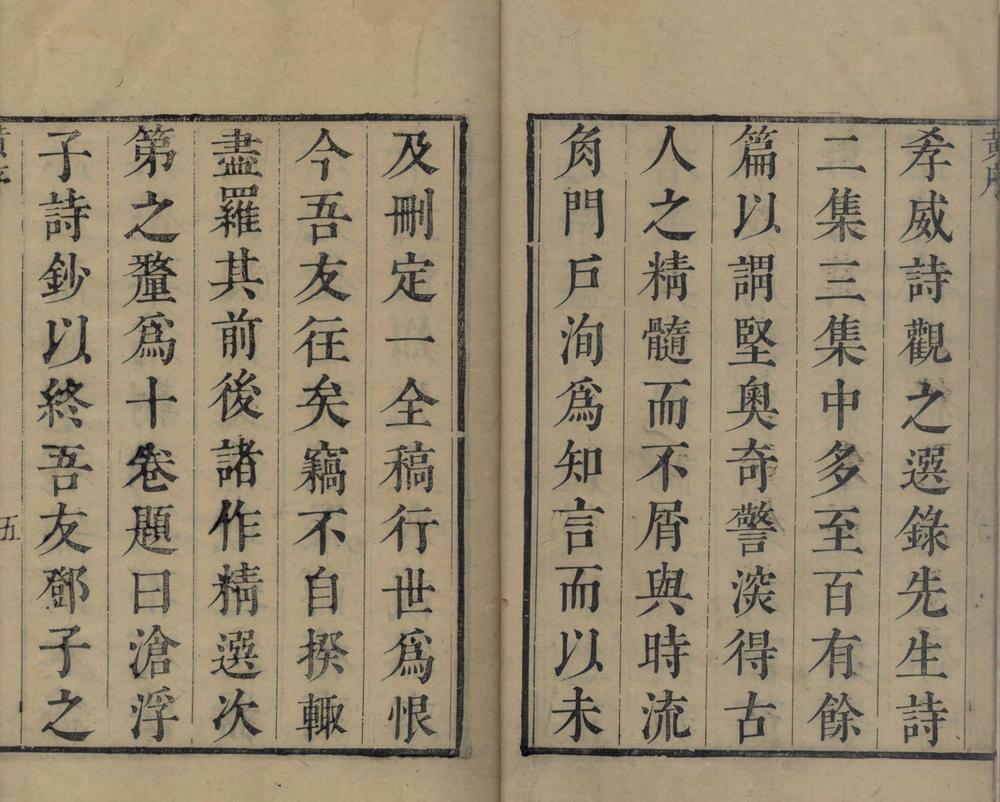 孝威詩觀之選錄先生詩
二集三集中多至百有餘
篇以謂堅奧奇警深得古
人之精髓而不屑與時流
角門戶洵爲知言而以未
及刪定一全稿行世爲恨
今吾友往矣竊不自揆輙
盡羅其前後諸作精選次
第之釐爲十卷題曰滄浮
子詩鈔以終吾友鄧子之
五